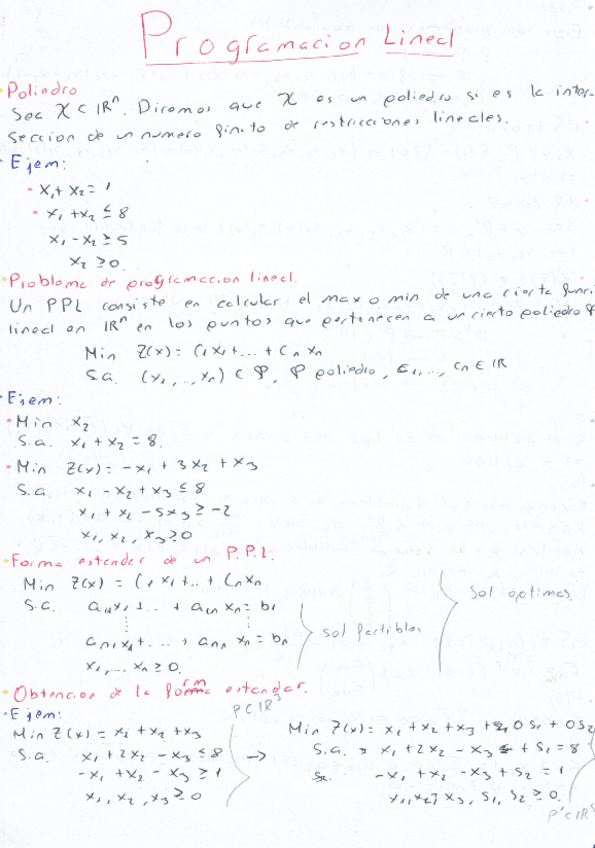 Programacion Lineal
Poliedro
Sea X ⊂ IRⁿ. Diremos que X es un poliedro si es la inter-
sección de un numero finito de restricciones lineales.
Ejem:
x₁ + x₂ = 1
x₁ + x₂ ≤ 8
x₁ - x₂ ≥ 5
x₂ ≥ 0
Problema de programacion lineal.
Un PPL consiste en calcular el max o min de una cierta funci
lineal en IRⁿ en los puntos que pertenecen a un cierto poliedro
Min Z(x) = C₁x₁ + ... + Cₙxₙ
S.a. (x₁, ..., xₙ) ⊂ P, P poliedro, C₁, ..., Cₙ ∈ IR
Ejem:
Min x₂
S.a. x₁ + x₂ = 8.
Min Z(x) = -x₁ + 3x₂ + x₃
S.a. x₁ - x₂ + x₃ ≤ 8
x₁ + x₂ - 5x₃ ≥ -2
x₁, x₂, x₃ ≥ 0
Forma estender de un P.P.L.
Min Z(x) = C₁x₁ + ... + Cₙxₙ
S.a. a₁₁x₁ + ... + a₁ₙxₙ = b₁
aₙ₁x₁ + ... + aₙₙxₙ = bₙ
x₁, ... xₙ ≥ 0
sol factibles
Sol optimas
Obtencion de la forma estender.
Ejem:
P ⊂ IR³
Min Z(x) = x₁ + x₂ + x₃
S.a. x₁ + 2x₂ - x₃ ≤ 8 →
-x₁ + x₂ - x₃ ≥ 1
x₁, x₂, x₃ ≥ 0
Min Z(x) = x₁ + x₂ + x₃ + 0S₁ + 0S₂
S.a. x₁ + 2x₂ - x₃ + S₁ = 8
-x₁ + x₂ - x₃ + S₂ = 1
x₁, x₂, x₃, S₁, S₂ ≥ 0.
P' ⊂ IR⁵